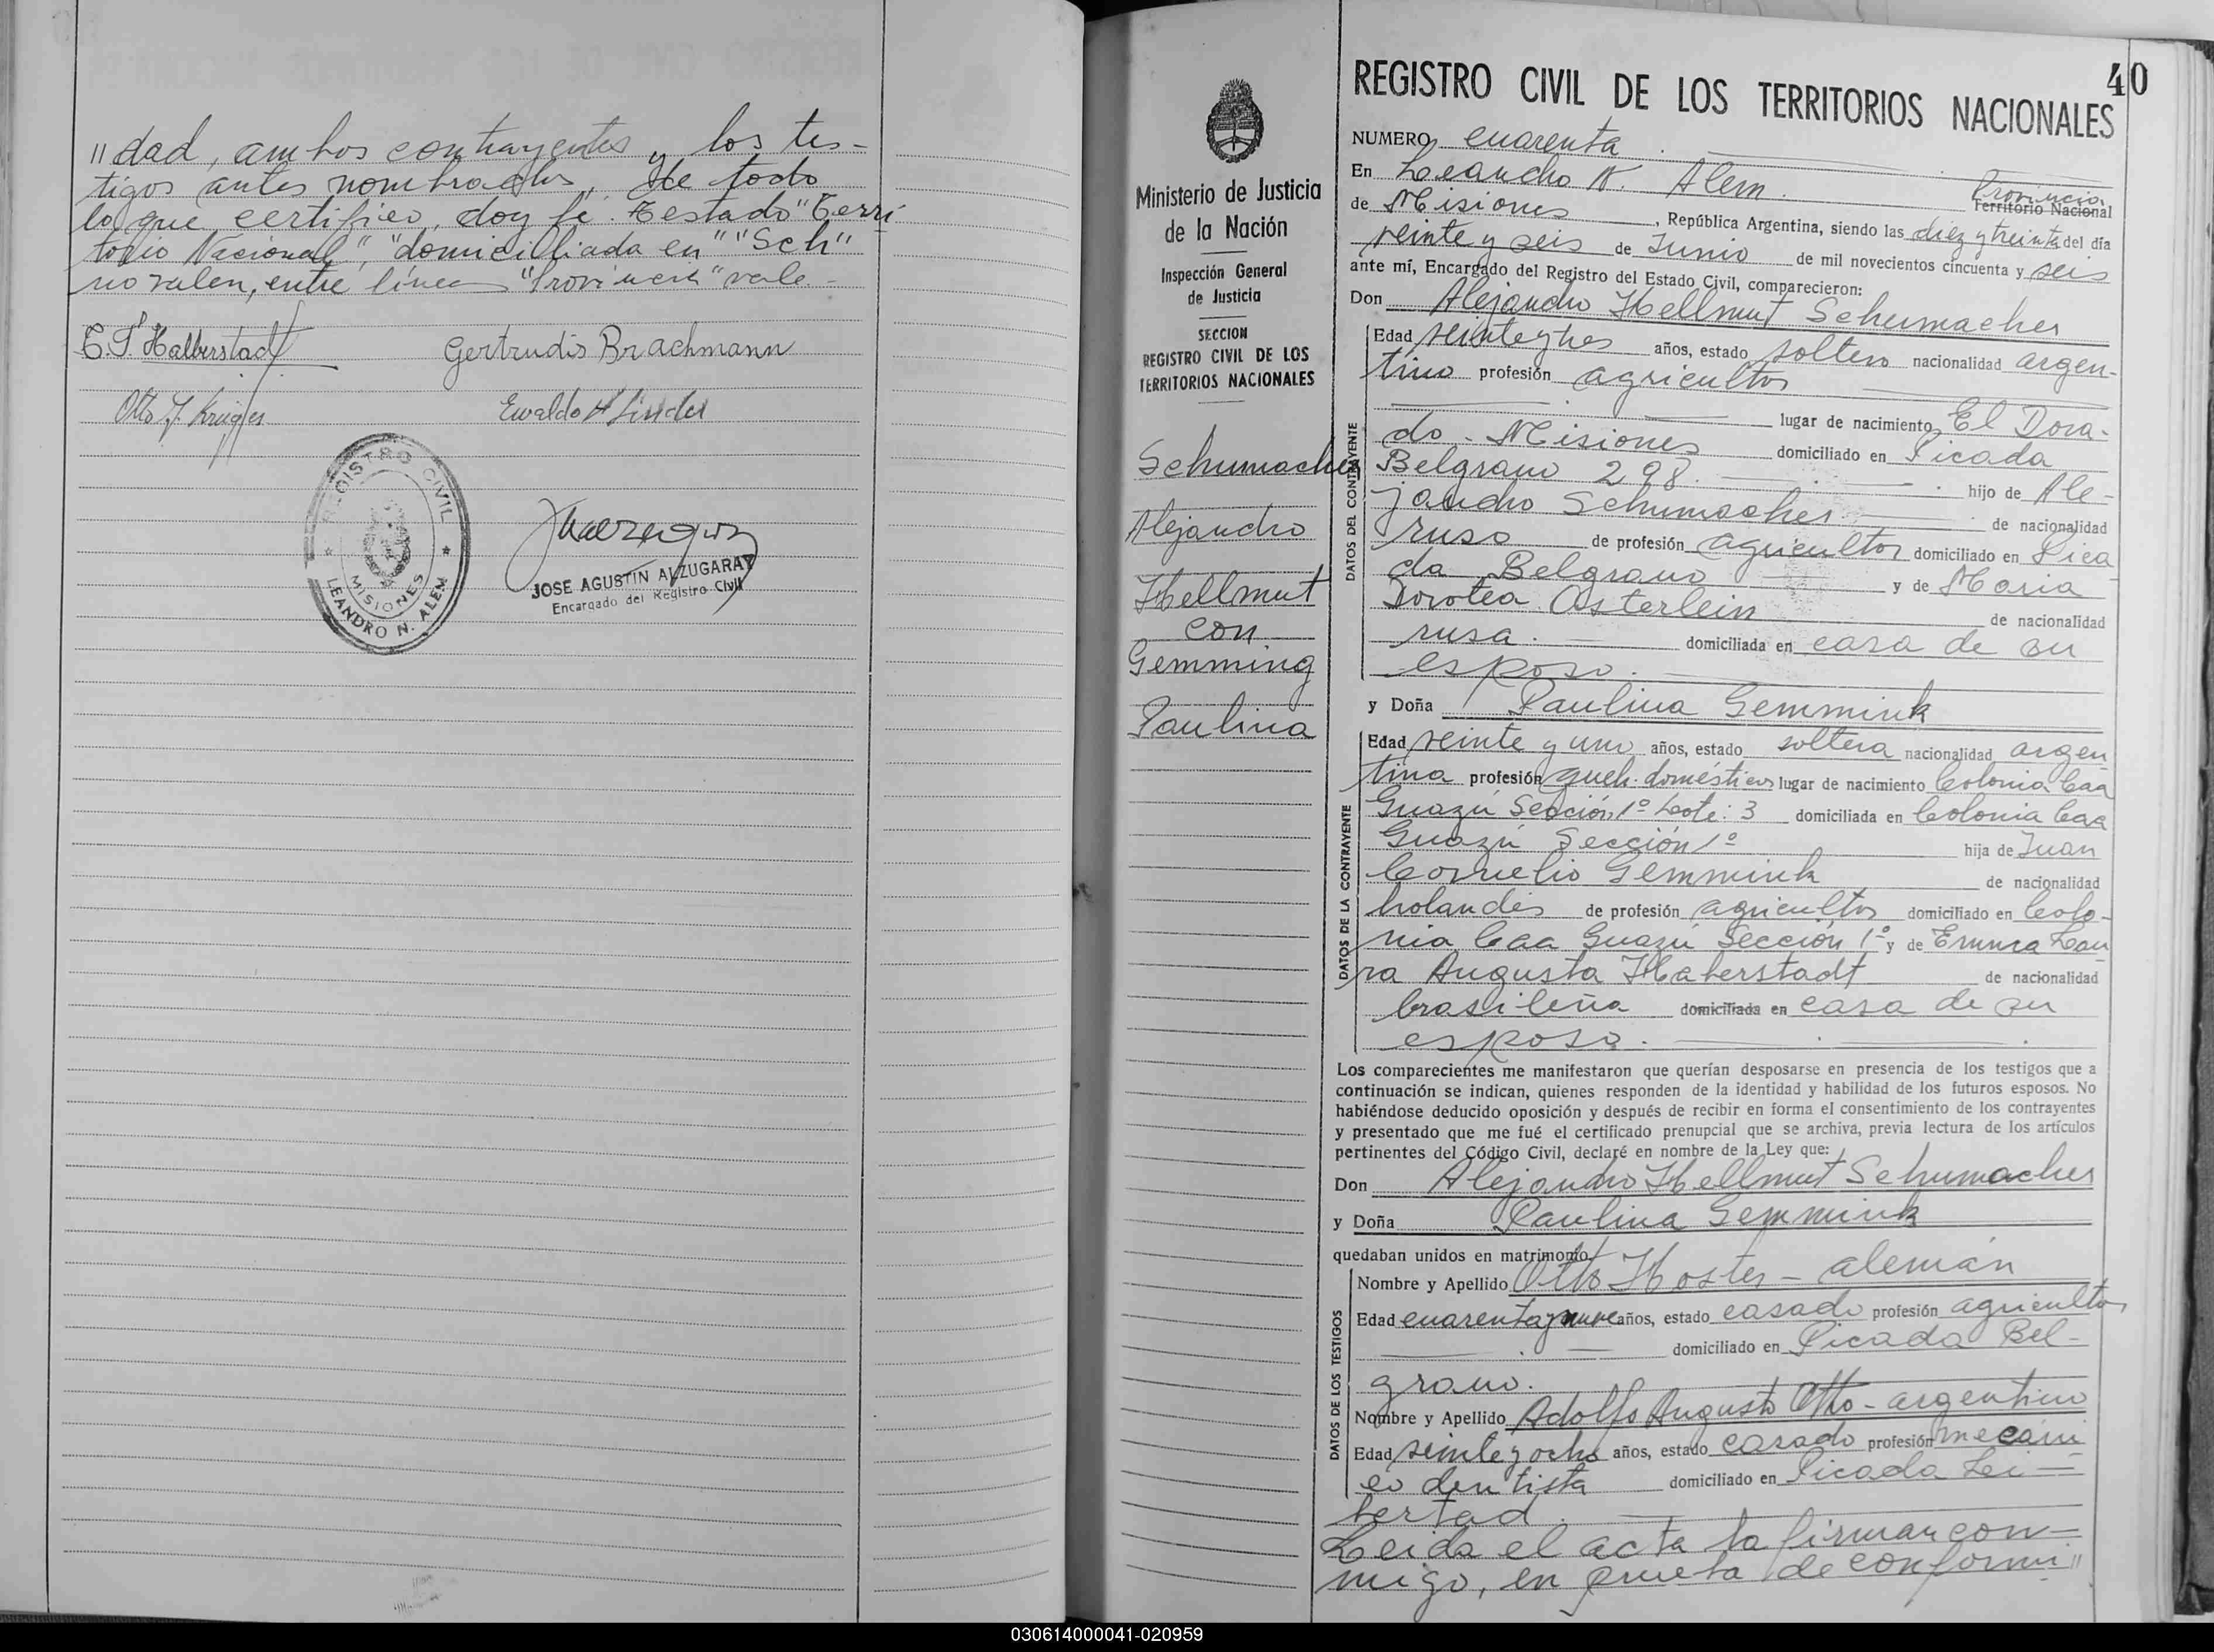 "dad, ambos contrayentes y los tes-
tigos antes nombrados, de todo
lo que certifico, doy fé. Testado "Terri
torio Nacional", "domicilliada en" "Sch"
no valen, entre línea "Provincia" vale.-
E. T. Halberstadt Gertrudis Brachmann
Otto J. Krüger Ewaldo H Linder
REGISTRO CIVIL
MISIONES
LEANDRO N. ALEM
JOSE AGUSTIN ALZUGARAY
Encargado del Registro Civil
Ministerio de Justicia
de la Nación
Inspección General
de Justicia
SECCION
REGISTRO CIVIL DE LOS
TERRITORIOS NACIONALES
Schumacher
Alejandro
Hellmut
con
Gemming
Paulina
40
REGISTRO CIVIL DE LOS TERRITORIOS NACIONALES
NUMERO cuarenta
En Leandro N. Alem. Provincia
Territorio Nacional
de Misiones, República Argentina, siendo las diez y treinta del día
veinte y seis de Junio de mil novecientos cincuenta y seis
ante mí, Encargado del Registro del Estado Civil, comparecieron:
Don Alejandro Hellmut Schumacher
DATOS DEL CONTRAYENTE
Edad veinte y tres años, estado soltero nacionalidad argen-
tino profesión agricultor
lugar de nacimiento El Dora-
do - Misiones domiciliado en Picada
Belgrano 298. hijo de Ale-
jandro Schumacher de nacionalidad
ruso de profesión agricultor domiciliado en Pica
da Belgrano y de Maria
Dorotea Osterlein de nacionalidad
rusa. domiciliada en casa de su
esposo.
y Doña Paulina Gemmink
DATOS DE LA CONTRAYENTE
Edad veinte y uno años, estado soltera nacionalidad argen
tina profesión queh. domésticos lugar de nacimiento Colonia Caa
Guazú Sección 1º Lote: 3 domiciliada en Colonia Caa
Guazú Sección 1º hija de Juan
Cornelio Gemmink de nacionalidad
holandés de profesión agricultor domiciliado en Colo-
nia Caa Guazú Sección 1º y de Emma Lau
ra Augusta Haberstadt de nacionalidad
brasileña domiciliada en casa de su
esposo.
Los comparecientes me manifestaron que querían desposarse en presencia de los testigos que a
continuación se indican, quienes responden de la identidad y habilidad de los futuros esposos. No
habiéndose deducido oposición y después de recibir en forma el consentimiento de los contrayentes
y presentado que me fué el certificado prenupcial que se archiva, previa lectura de los artículos
pertinentes del Código Civil, declaré en nombre de la Ley que:
Don Alejandro Hellmut Schumacher
y Doña Paulina Gemmink
quedaban unidos en matrimonio.
DATOS DE LOS TESTIGOS
Nombre y Apellido Otto Hoster - alemán
Edad cuarenta y nueve años, estado casado profesión agricultor
domiciliado en Picada Bel-
grano.
Nombre y Apellido Adolfo Augusto Otto - argentino
Edad veinte y ocho años, estado casado profesión mecáni
co dentista domiciliado en Picada Li-
bertad.
Leida el acta la firman con-
migo, en prueba de conformi"
030614000041-020959